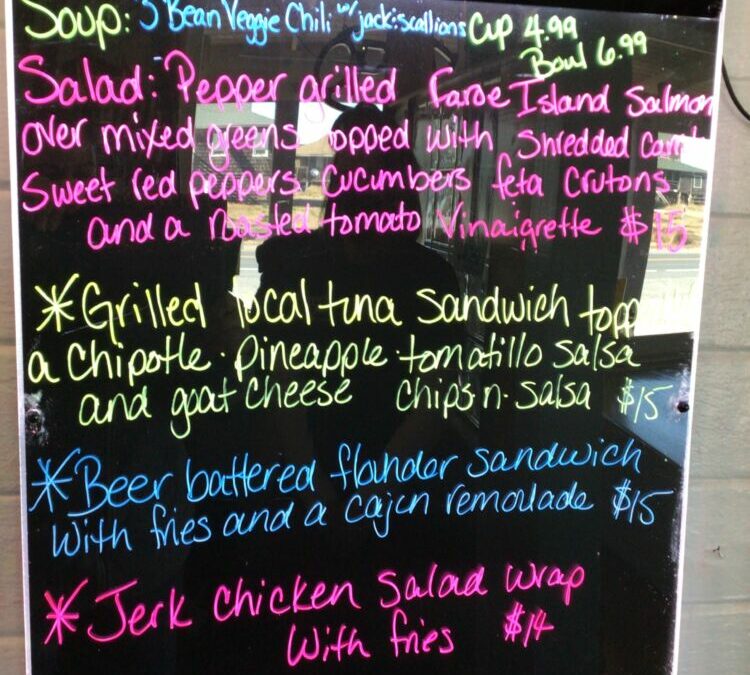 Soup: 3 Bean Veggie Chili w/jack&scallions Cup 4.99
Bowl 6.99
Salad: Pepper grilled Faroe Island Salmon
over mixed greens topped with Shredded
Sweet red peppers Cucumbers feta Crutons
and a roasted tomato Vinaigrette $15
*Grilled local tuna Sandwich
a Chipotle · pineapple · tomatillo Salsa
and goat cheese chips n · salsa $15
*Beer battered flounder sandwich
with fries and a cajun remoulade $15
*Jerk chicken salad wrap
with fries $14